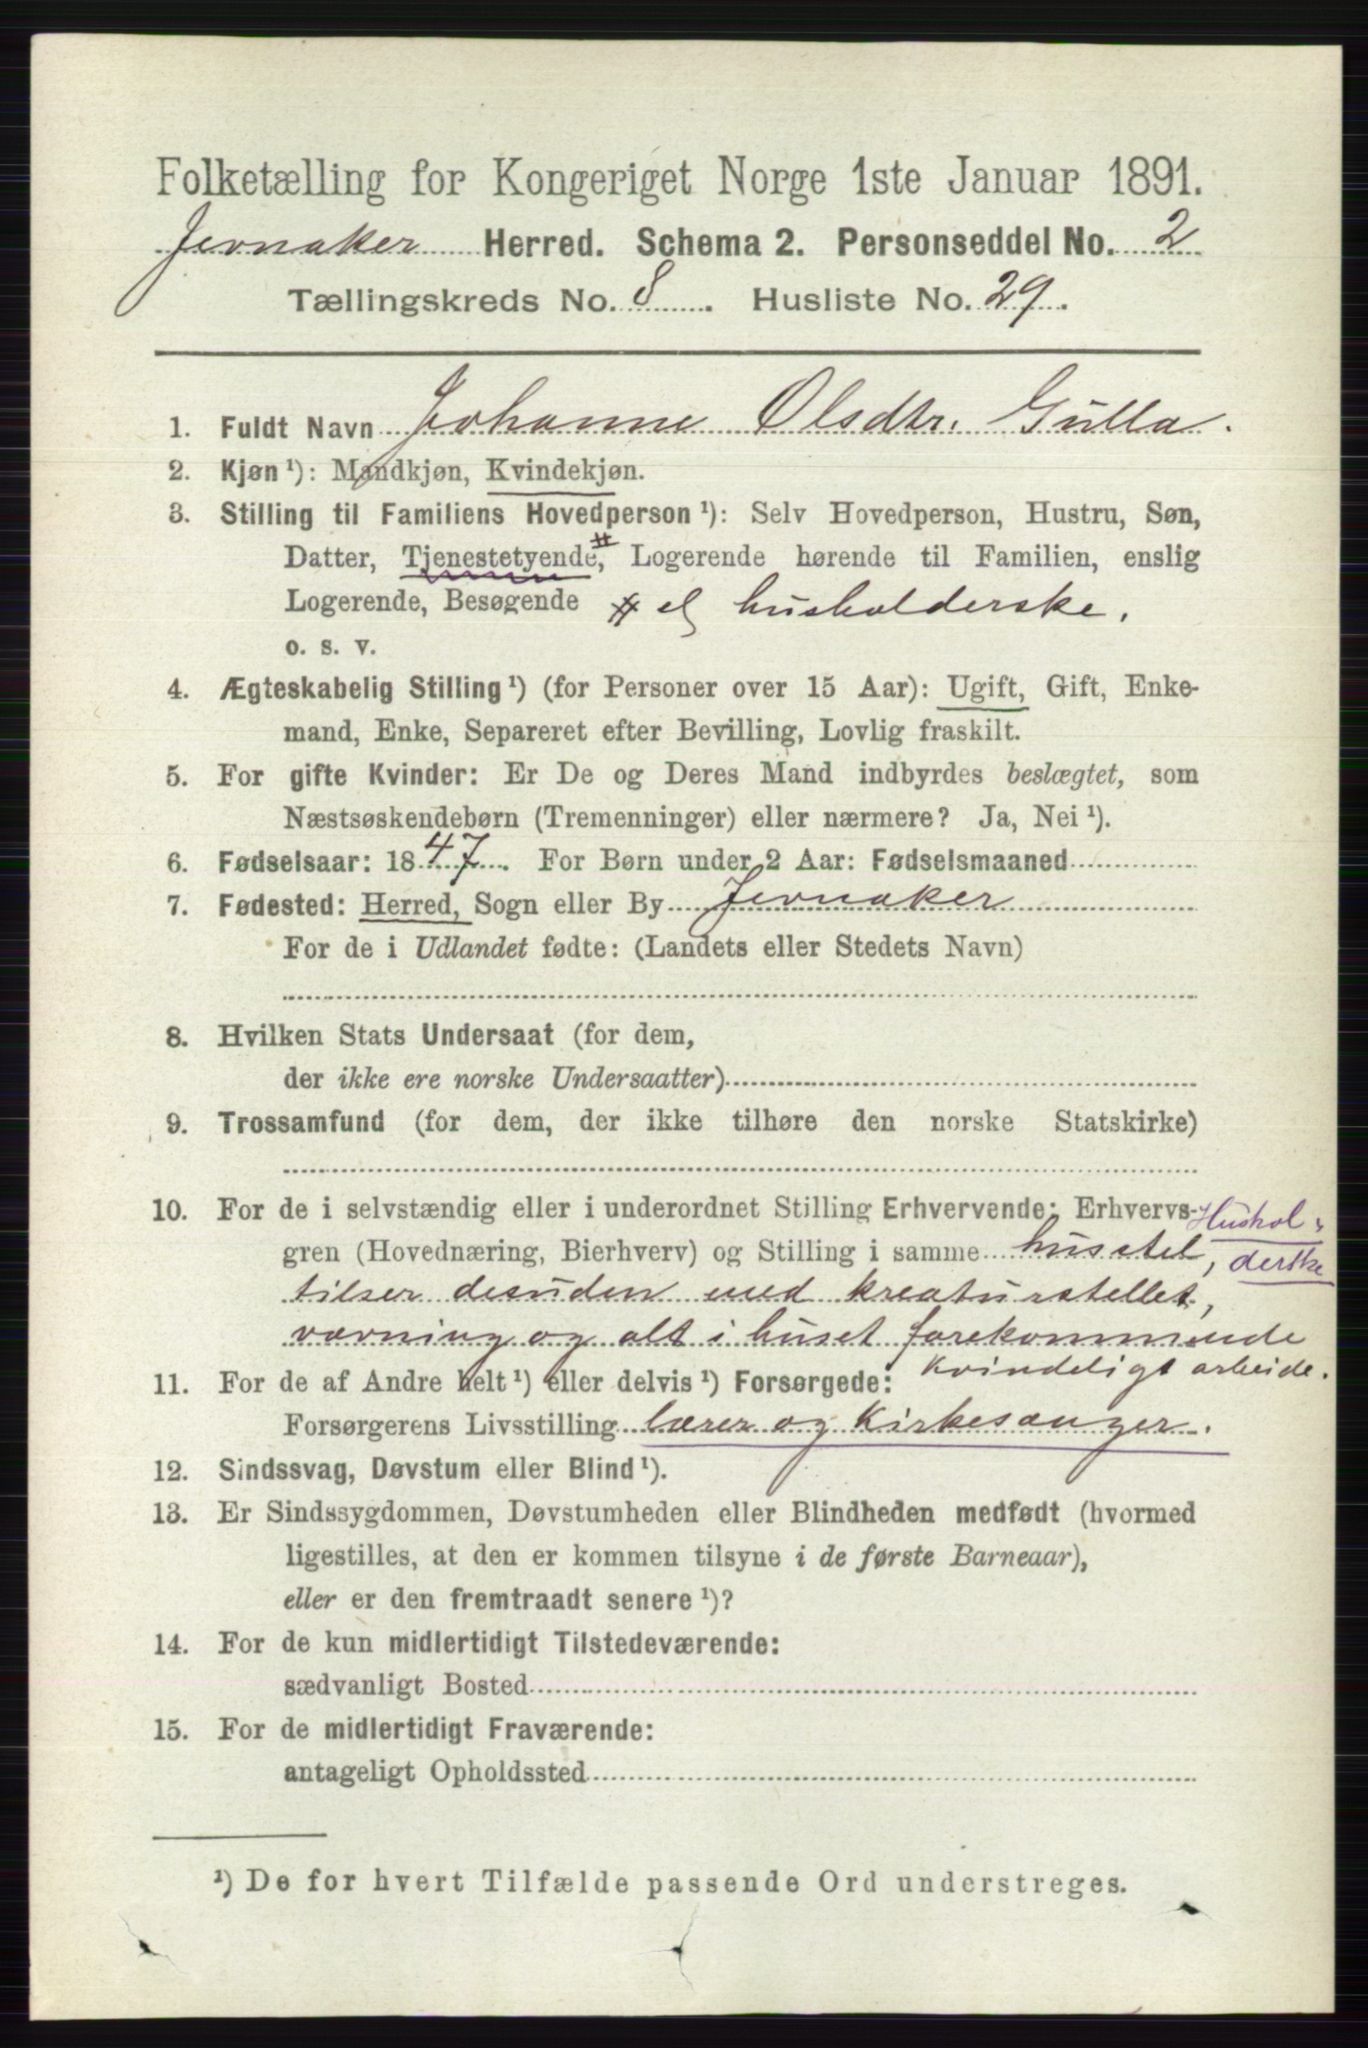 Folketælling for Kongeriget Norge 1ste Januar 1891.
Jevnaker Herred. Schema 2. Personseddel No. 2
Tællingskreds No. 8. Husliste No. 29.
1. Fuldt Navn Johanne Olsdtr. Gulla.
2. Kjøn ¹): Mandkjøn, Kvindekjøn.
3. Stilling til Familiens Hovedperson ¹): Selv Hovedperson, Hustru, Søn,
Datter, Tjenestetyende, # Logerende hørende til Familien, enslig
Logerende, Besøgende # el husholderske.
o. s. v.
4. Ægteskabelig Stilling ¹) (for Personer over 15 Aar): Ugift, Gift, Enke-
mand, Enke, Separeret efter Bevilling, Lovlig fraskilt.
5. For gifte Kvinder: Er De og Deres Mand indbyrdes beslægtet, som
Næstsøskendebørn (Tremenninger) eller nærmere? Ja, Nei ¹).
6. Fødselsaar: 1847. For Børn under 2 Aar: Fødselsmaaned
7. Fødested: Herred, Sogn eller By Jevnaker
For de i Udlandet fødte: (Landets eller Stedets Navn)
8. Hvilken Stats Undersaat (for dem,
der ikke ere norske Undersaatter)
9. Trossamfund (for dem, der ikke tilhøre den norske Statskirke)
10. For de i selvstændig eller i underordnet Stilling Erhvervende: Erhvervs- Hushol-
gren (Hovednæring, Bierhverv) og Stilling i samme husstel, derske
tilser desuden med kreaturstellet,
vævning og alt i huset forekommende
kvindeligt arbeide.
11. For de af Andre helt ¹) eller delvis ¹) Forsørgede:
Forsørgerens Livsstilling lærer og Kirkesanger.
12. Sindssvag, Døvstum eller Blind ¹).
13. Er Sindssygdommen, Døvstumheden eller Blindheden medfødt (hvormed
ligestilles, at den er kommen tilsyne i de første Barneaar),
eller er den fremtraadt senere ¹)?
14. For de kun midlertidigt Tilstedeværende:
sædvanligt Bosted
15. For de midlertidigt Fraværende:
antageligt Opholdssted
¹) De for hvert Tilfælde passende Ord understreges.